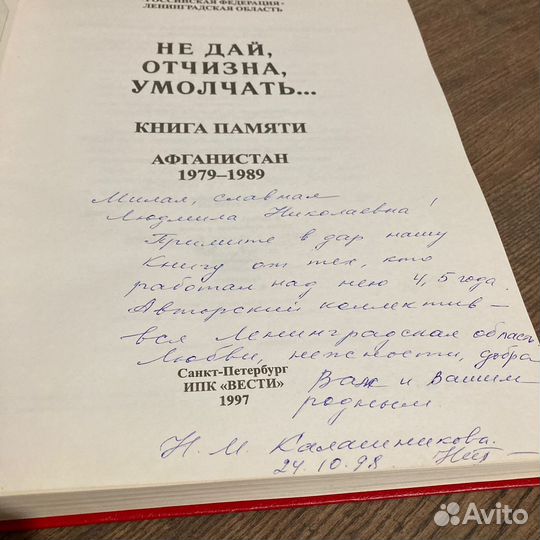 РОССИЙСКАЯ ФЕДЕРАЦИЯ-
ЛЕНИНГРАДСКАЯ ОБЛАСТЬ
НЕ ДАЙ,
ОТЧИЗНА,
УМОЛЧАТЬ...
КНИГА ПАМЯТИ
АФГАНИСТАН
1979–1989
Милая, славная
Людмила Николаевна!
Примите в дар нашу
Книгу от тех, кто
работал над нею 4,5 года.
Авторский коллектив –
вся Ленинградская область
Любви, нежности, добра
Вам и Вашим
родным
Санкт-Петербург
ИПК «ВЕСТИ»
1997
Н. М. Калашникова.
24.10.98.
Avito